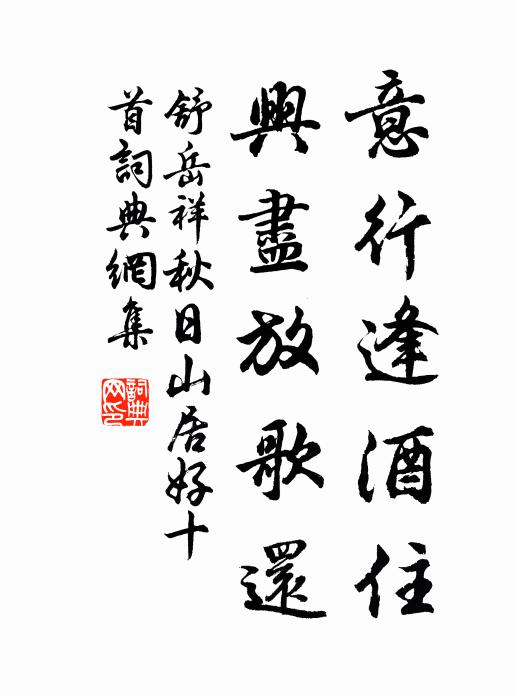 意行逢酒住
興盡放歌還
舒岳祥秋日山居好十
首詞典網集
詞典
网印